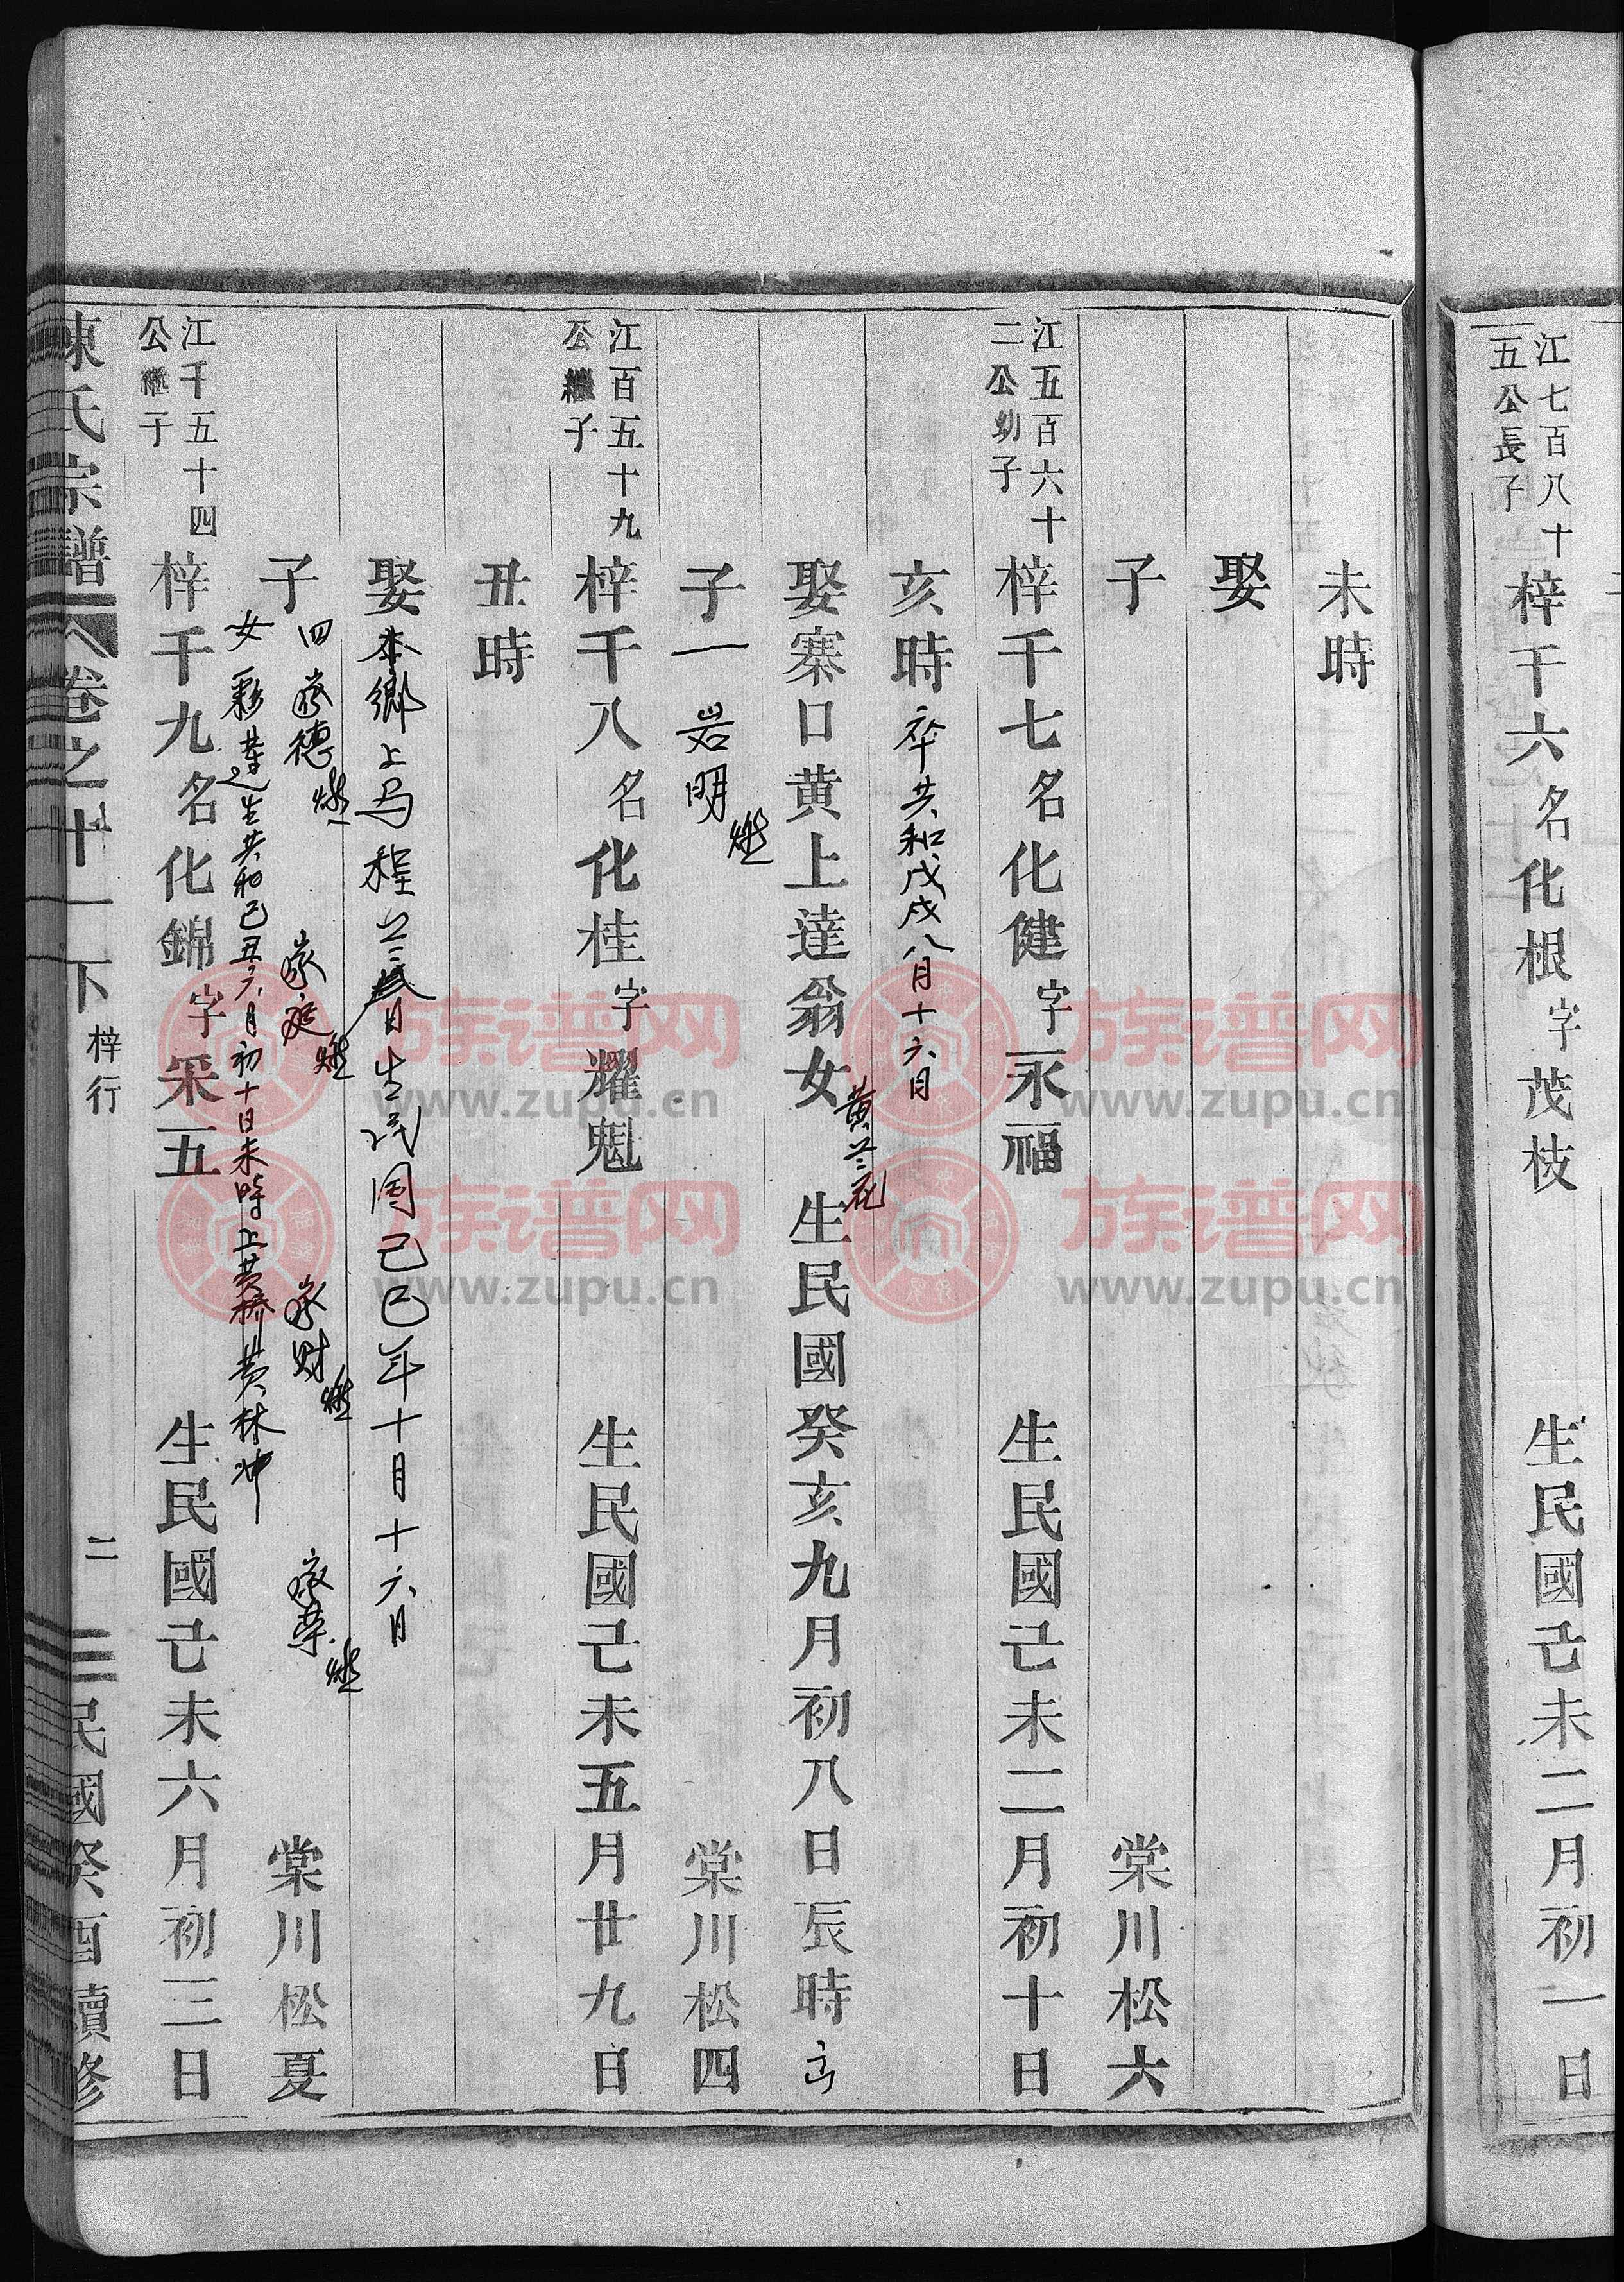 江七百八十
五公長子
梓千六名化根字茂枝 生民國己未二月初一日
未時
娶
子 棠川松六
江五百六十
二公幼子
梓千七名化健字永福 生民國己未二月初十日
亥時 卒共和戊戌八月十六日
娶寨口黃上達翁女 黄兰花 生民國癸亥九月初八日辰時
子一 岩明 棠川松四
江百五十九
公繼子
梓千八名化桂字耀魁 生民國己未五月廿九日
丑時
娶本鄉上乌程兰 生民国己巳年十月十六日
子 四 家德 家庭 家财 家荣 棠川松夏
女 彩莲 生共和己丑六月初十日未時 上黄桥黄林冲
江千五十四
公繼子
梓千九名化錦字采五 生民國己未六月初三日
陳氏宗譜 卷之十一下 梓行 二 民國癸酉續修
族谱网
www.zupu.cn
族谱网
www.zupu.cn
族谱网
www.zupu.cn
族谱网
www.zupu.cn